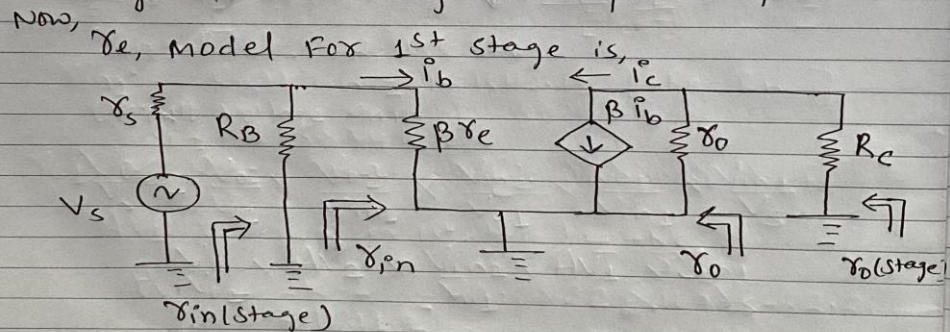 Now,
re, model For 1st stage is,
ib
ic
rs
RB
βre
βib
ro
Rc
Vs
rin
ro
ro(stage)
rin(stage)